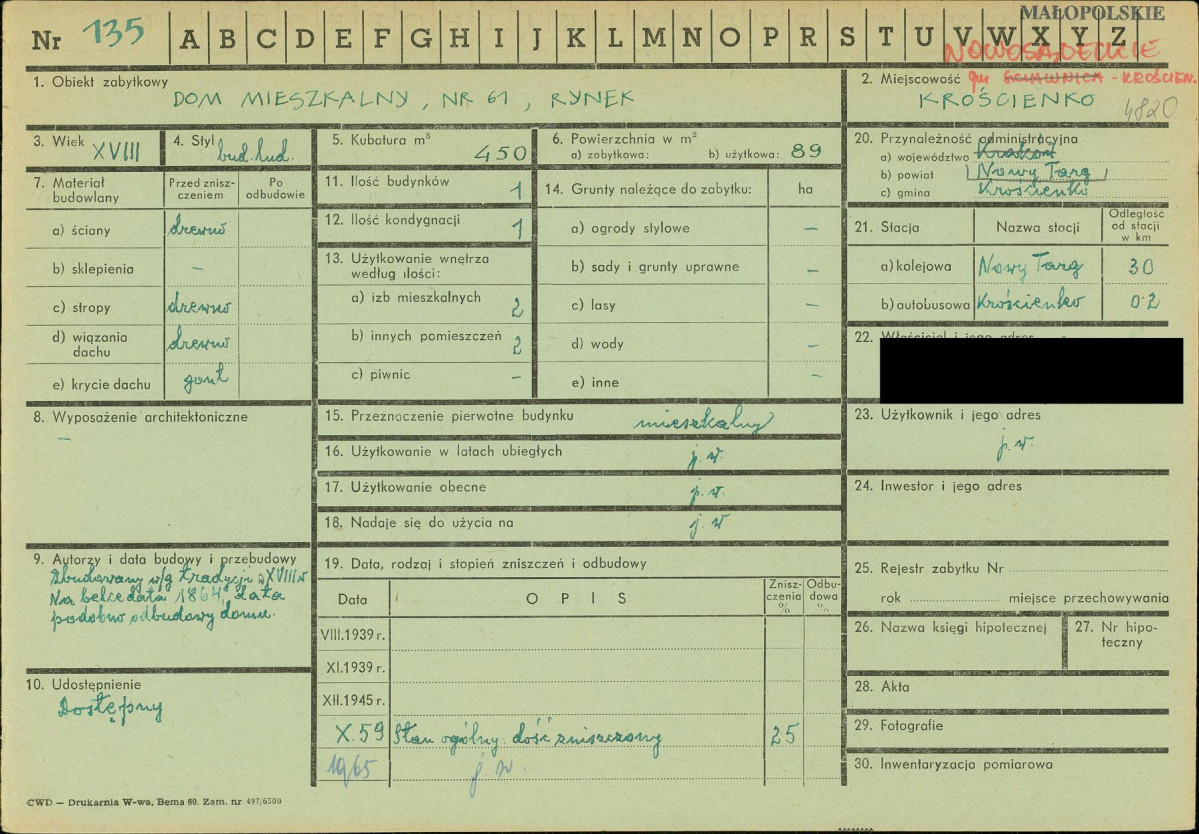 MAŁOPOLSKIE
Nr 135 A B C D E F G H I J K L M N O P R S T U V W X Y Z
NOWOSĄDECKIE
1. Obiekt zabytkowy
DOM MIESZKALNY, NR 61, RYNEK
2. Miejscowość gm SZCZAWNICA - KROŚCIEN.
KROŚCIENKO
4820
3. Wiek XVIII
4. Styl bud. lud.
5. Kubatura m³ 450
6. Powierzchnia w m²
a) zabytkowa: b) użytkowa: 89
20. Przynależność administracyjna
a) województwo Kraków
b) powiat Nowy Targ
c) gmina Krościenko
7. Materiał budowlany
Przed znisz-
czeniem
Po
odbudowie
a) ściany drewno
b) sklepienia –
c) stropy drewno
d) wiązania
dachu drewno
e) krycie dachu gont
11. Ilość budynków 1
12. Ilość kondygnacji 1
13. Użytkowanie wnętrza
według ilości:
a) izb mieszkalnych 2
b) innych pomieszczeń 2
c) piwnic –
14. Grunty należące do zabytku: ha
a) ogrody stylowe –
b) sady i grunty uprawne –
c) lasy –
d) wody –
e) inne –
21. Stacja Nazwa stocji
Odległość
od stacji
w km
a) kolejowa Nowy Targ 30
b) autobusowa Krościenko 0.2
22. Właściciel i jego adres
8. Wyposażenie architektoniczne
–
15. Przeznaczenie pierwotne budynku mieszkalny
16. Użytkowanie w latach ubiegłych j. w.
17. Użytkowanie obecne j. w.
18. Nadaje się do użycia na j. w
23. Użytkownik i jego adres
j. w.
24. Inwestor i jego adres
9. Autorzy i data budowy i przebudowy
Zbudowany w/g tradycji z XVIII w
Na belce data 1864, data
podobno odbudowy domu.
10. Udostępnienie
Dostępny
19. Data, rodzaj i stopień zniszczeń i odbudowy
Data OPIS
Znisz-
czenia
%
Odbu-
dowa
%
VIII.1939 r.
XI.1939 r.
XII.1945 r.
X.59 Stan ogólny dość zniszczony 25
1965 j w.
25. Rejestr zabytku Nr
rok miejsce przechowywania
26. Nazwa księgi hipotecznej
27. Nr hipo-
teczny
28. Akta
29. Fotografie
30. Inwentaryzacja pomiarowa
CWD — Drukarnia W-wa, Bema 60. Zam. nr 497/6500